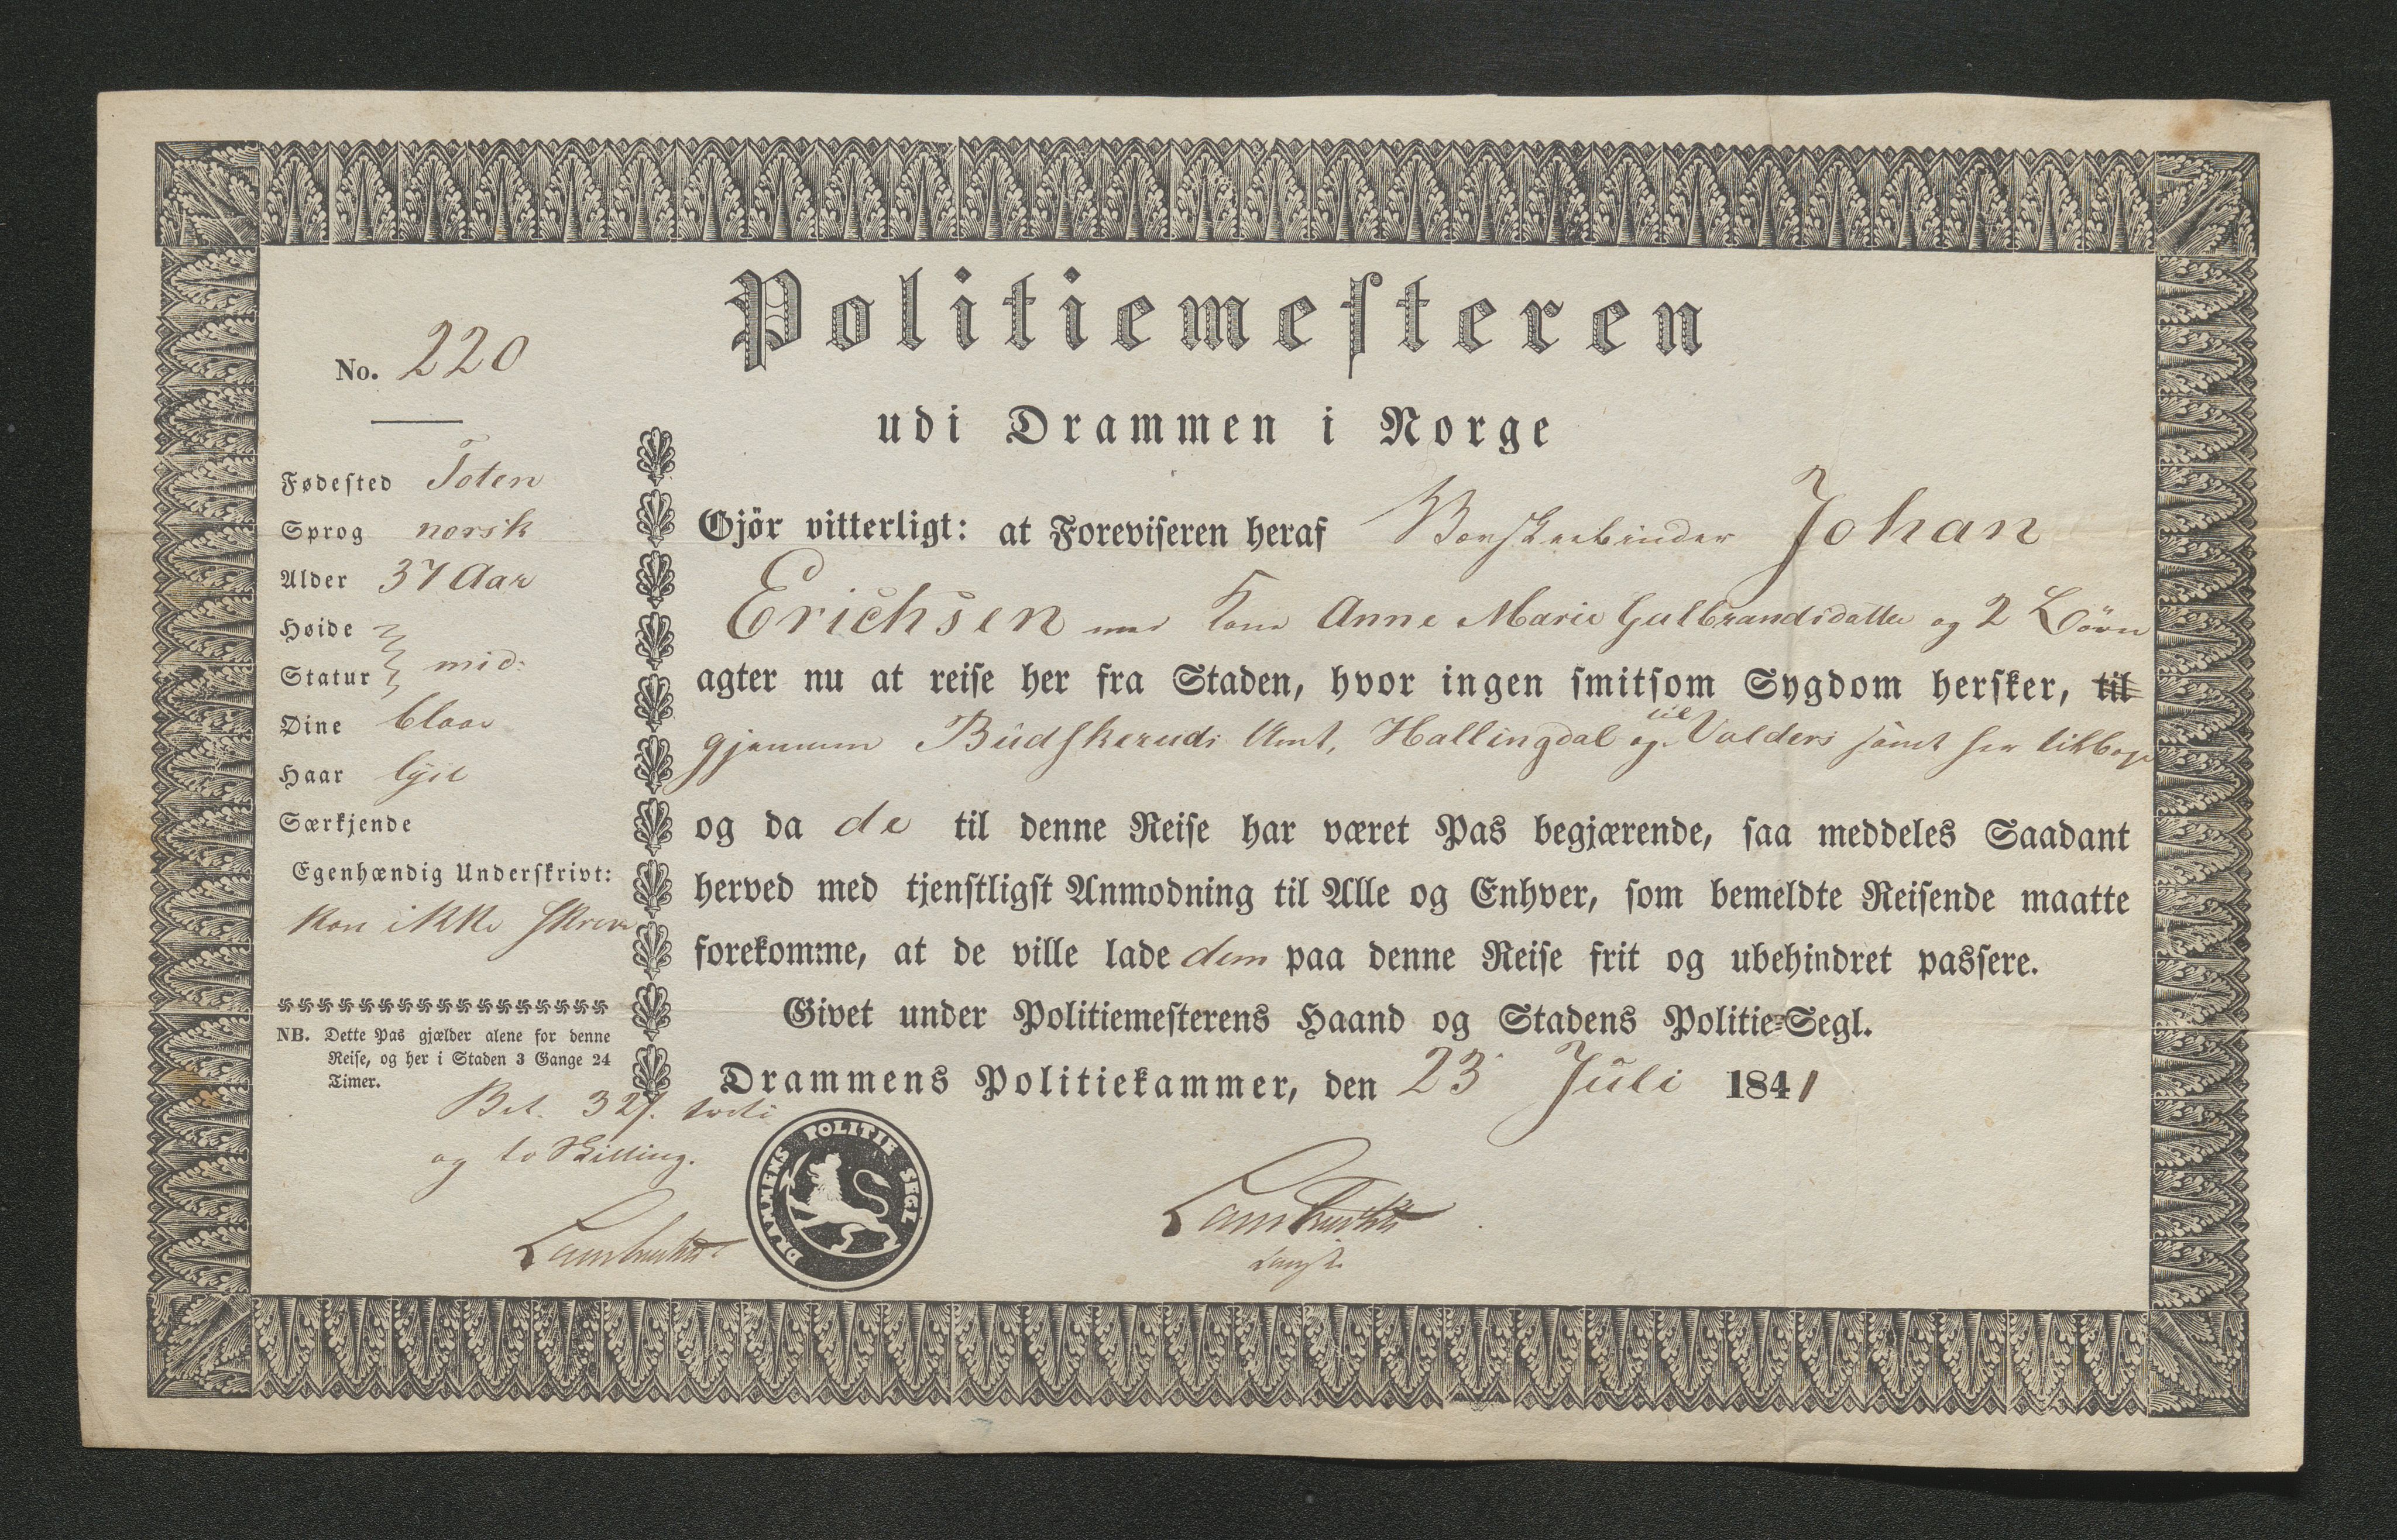 Politiemesteren
udi Drammen i Norge
No. 220
Fødested Toten
Sprog norsk
Alder 37 Aar
Høide
Statur mid:
Øine blaae
Haar lyst
Særkjende
Egenhændig Underskrivt:
kan ikke skrive
NB. Dette Pas gjælder alene for denne
Reise, og her i Staden 3 Gange 24
Timer.
Bet. 32 ſ. treti
og to Skilling.
Lambrechts
Gjör vitterligt: at Foreviseren heraf Børstenbinder Johan
Erichsen med Kone Anne Marie Gulbrandsdatter og 2 Börn
agter nu at reise her fra Staden, hvor ingen smitsom Sygdom hersker, til
gjennem Budskeruds Amt, Hallingdal og til Valders samt her tilbage
og da de til denne Reise har været Pas begjærende, saa meddeles Saadant
herved med tjenstligst Anmodning til Alle og Enhver, som bemeldte Reisende maatte
forekomme, at de ville lade dem paa denne Reise frit og ubehindret passere.
Givet under Politiemesterens Haand og Stadens Politie-Segl.
Drammens Politiekammer, den 23 Juli 1841
DRAMMENS POLITIE SEGL
Lambrechts